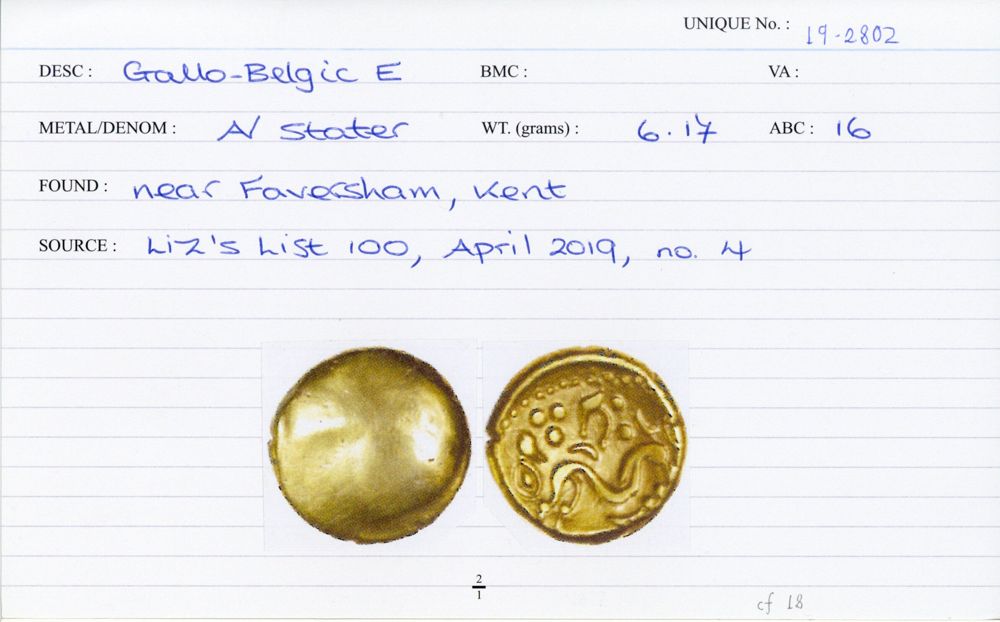 UNIQUE No. : 19-2802
DESC : Gallo-Belgic E BMC : VA :
METAL/DENOM : A/ Stater WT. (grams) : 6.17 ABC : 16
FOUND : near Faversham, Kent
SOURCE : Liz's List 100, April 2019, no. 4
2
1
cf 18